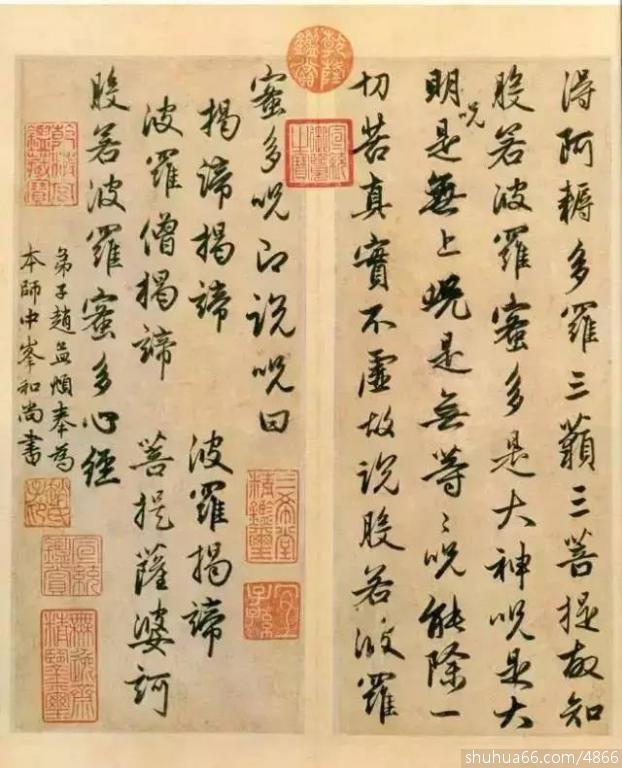 得阿耨多羅三藐三菩提故知
般若波羅蜜多是大神呪是大
明呪是無上呪是無等〻呪能除一
切苦真實不虛故說般若波羅
蜜多呪即說呪曰
揭諦揭諦 波羅揭諦
波羅僧揭諦 菩提薩婆訶
般若波羅蜜多心經
弟子趙孟頫奉為
本師中峯和尚書
乾隆鑑賞
三希堂精鑑璽
宜子孫
宣統鑑賞
無逸齋精鑒璽
shuhua66.com/4866